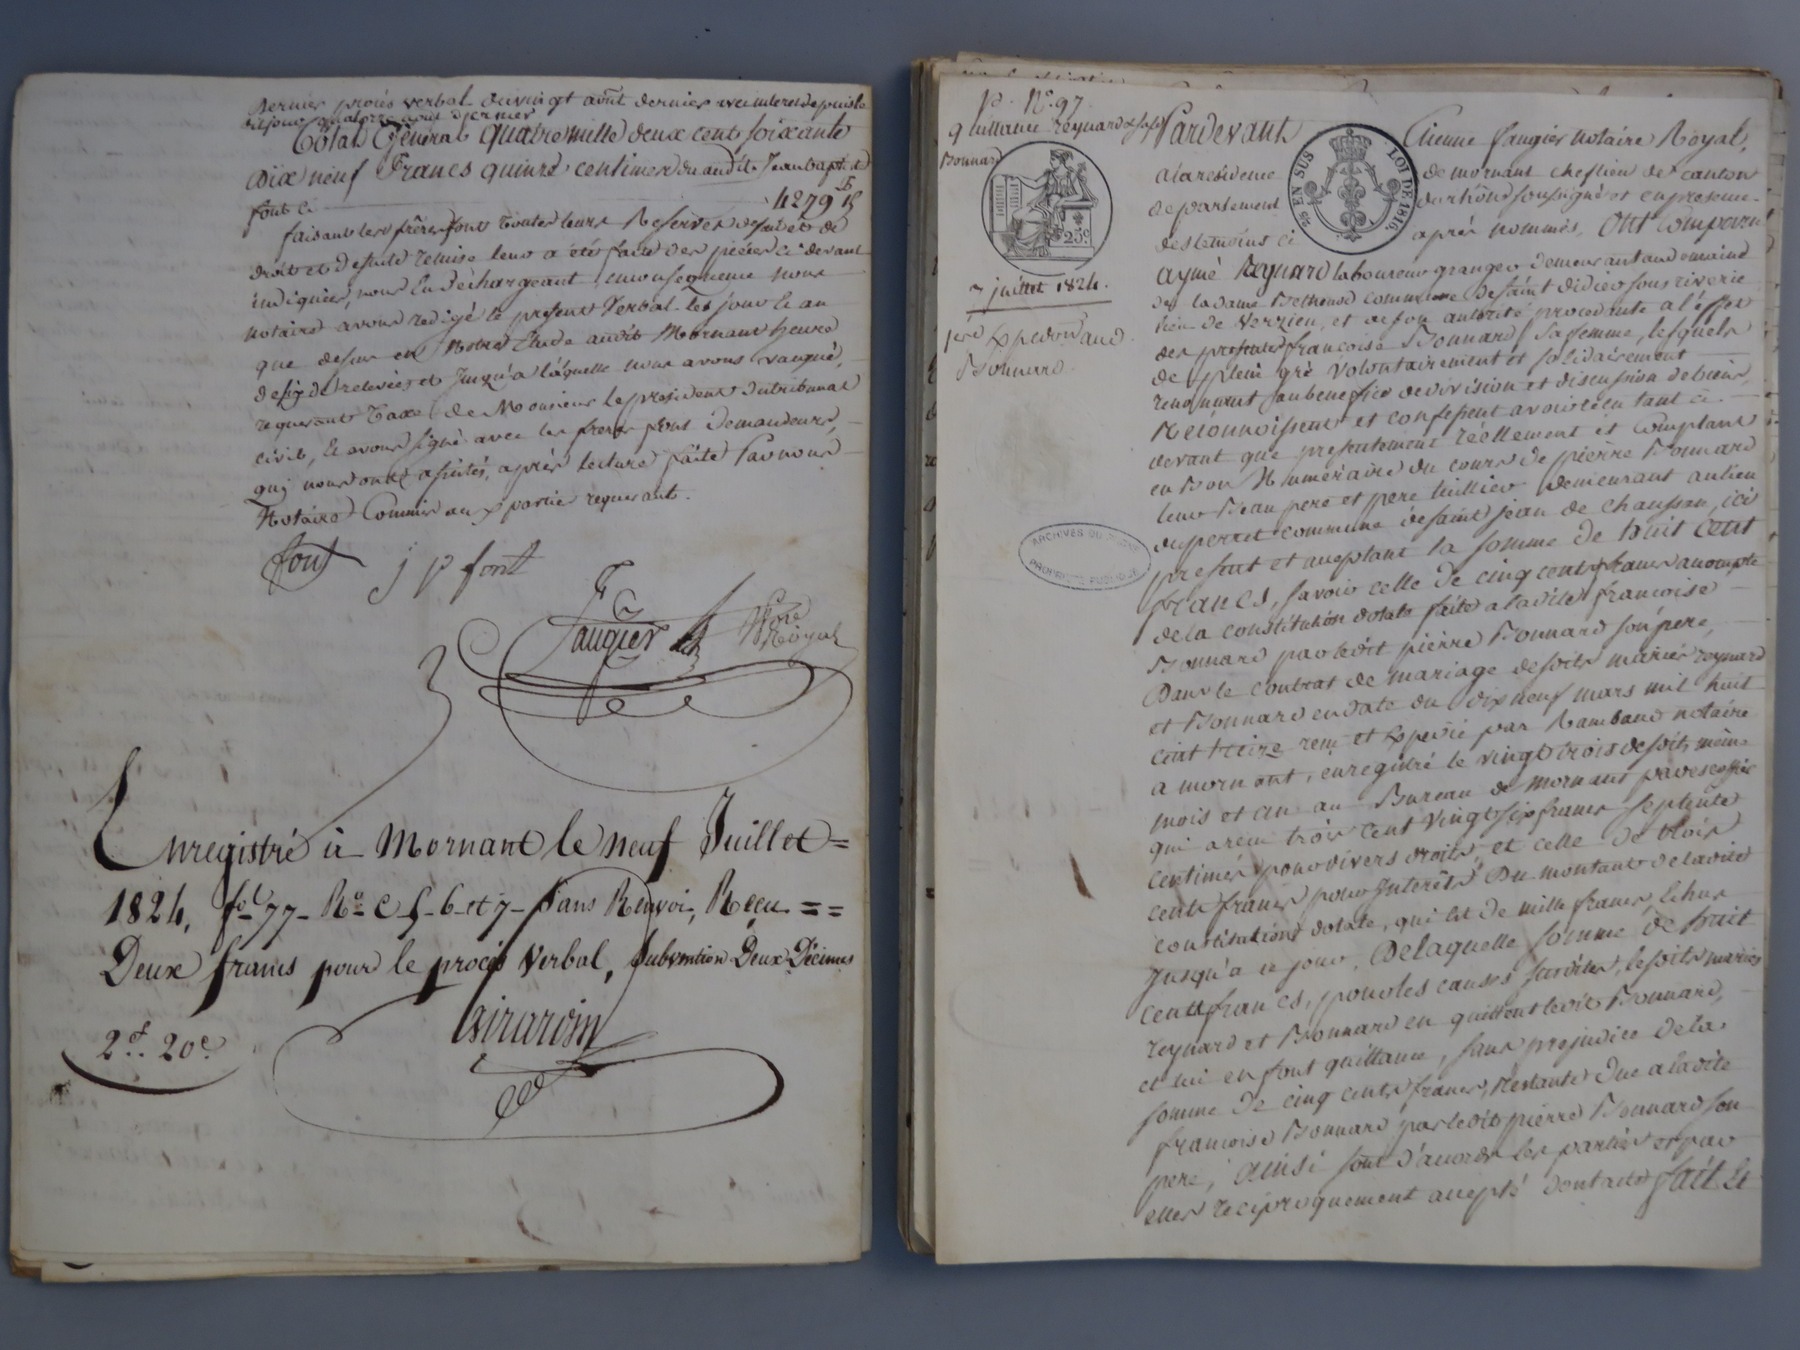 Dernier procès verbal du vingt août dernier avec interet depuis le
dit jour quatorze aout dernier
Total Général quatre mille deux cent soixante
dixe neuf francs quinze centimes du audit Jean bapt.te
font ci 4279 15
faisant les frères font toutes leurs Reserves de fait et de
droit et desuite remise leur a été faite des pièces ci devant
indiquées, nous en déchargeant, en conséquence nous
notaire avons redigé le present Verbal les jour et an
que dessus en Notre Etude audit Mornant heure
de six de relevée et jusqu'a laquelle nous avons vaqué,
requerant Taxe de Monsieur le president du tribunal
civil, Et avons signé avec les freres font Demandeurs,
quj nous ont assistés, après lecture faite Par nous
Notaire Commis aux partie requerant.
font j p font
Faugier Not.re Royal
Enregistré à Mornant le neuf Juillet =
1824, f.o 77 R.o C. 5. 6 et 7 Sans Renvoi, Reçu = =
Deux francs pour le procès Verbal, Subvention Deux Décimes
Girardin
2.f 20.c
P. N.o 97.
quittance Reynard & sa f.e
Bonnard
25.c
7 juillet 1824.
1ere Expedon aud.
Bonnard.
25 EN SUS LOI DE 1816
ARCHIVES DU RHÔNE
PROPRIÉTÉ PUBLIQUE
Pardevant Etienne faugier notaire Royal,
a la residence de mornant chef lieu de canton
departement du rhône soussigné et en presence
des temoins ci après nommés, Ont comparu
aymé Reynard laboureur granger demeurant au domaine
de la dame Bethenod commune de saint didier sous riverie
lieu de Verzieu, et de son autorité procedante a l'effet
des presentes françoise Bonnard sa femme, lesquels
de plein gré volontairement et solidairement
renonçant au benefice de division et discussion de biens,
Reconnoissent et confessent avoir reçu tant ci
devant que presentement réellement et comptant
en bon Numéraire du cours de pierre Bonnard
leur Beau pere et pere Cultiver demeurant au lieu
du perret commune de saint jean de chaussan, ici
present et acceptant la somme de huit cent
francs, savoir celle de cinq cent francs a compte
de la constitution dotale faite a ladite françoise
Bonnard par ledit pierre Bonnard son pere,
Dans le contrat de mariage desdits mariés reynard
et Bonnard en date du dix neuf mars mil huit
cent treize reçu et Expedié par Rambaud notaire
a mornant, enregistré le vingt trois desdits même
mois et an au Bureau de Mornant par descossie
qui a reçu trois cent vingt six francs septente
centimes pour divers droits, et celle de trois
cents francs pour Interêts Du montant de ladite
constitution dotale, qui est de mille francs, Echus
Jusqu'a ce jour. De laquelle somme de huit
cent francs, pour les causes susdites, lesdits mariés
reynard et Bonnard en quittent ledit Bonnard,
et lui en font quittance, sans prejudice de la
somme de cinq cents francs, Restante due a ladite
françoise Bonnard par ledit pierre Bonnard son
pere, ainsi sont d'accord les parties et par
elles reciproquement accepté dont acte fait et